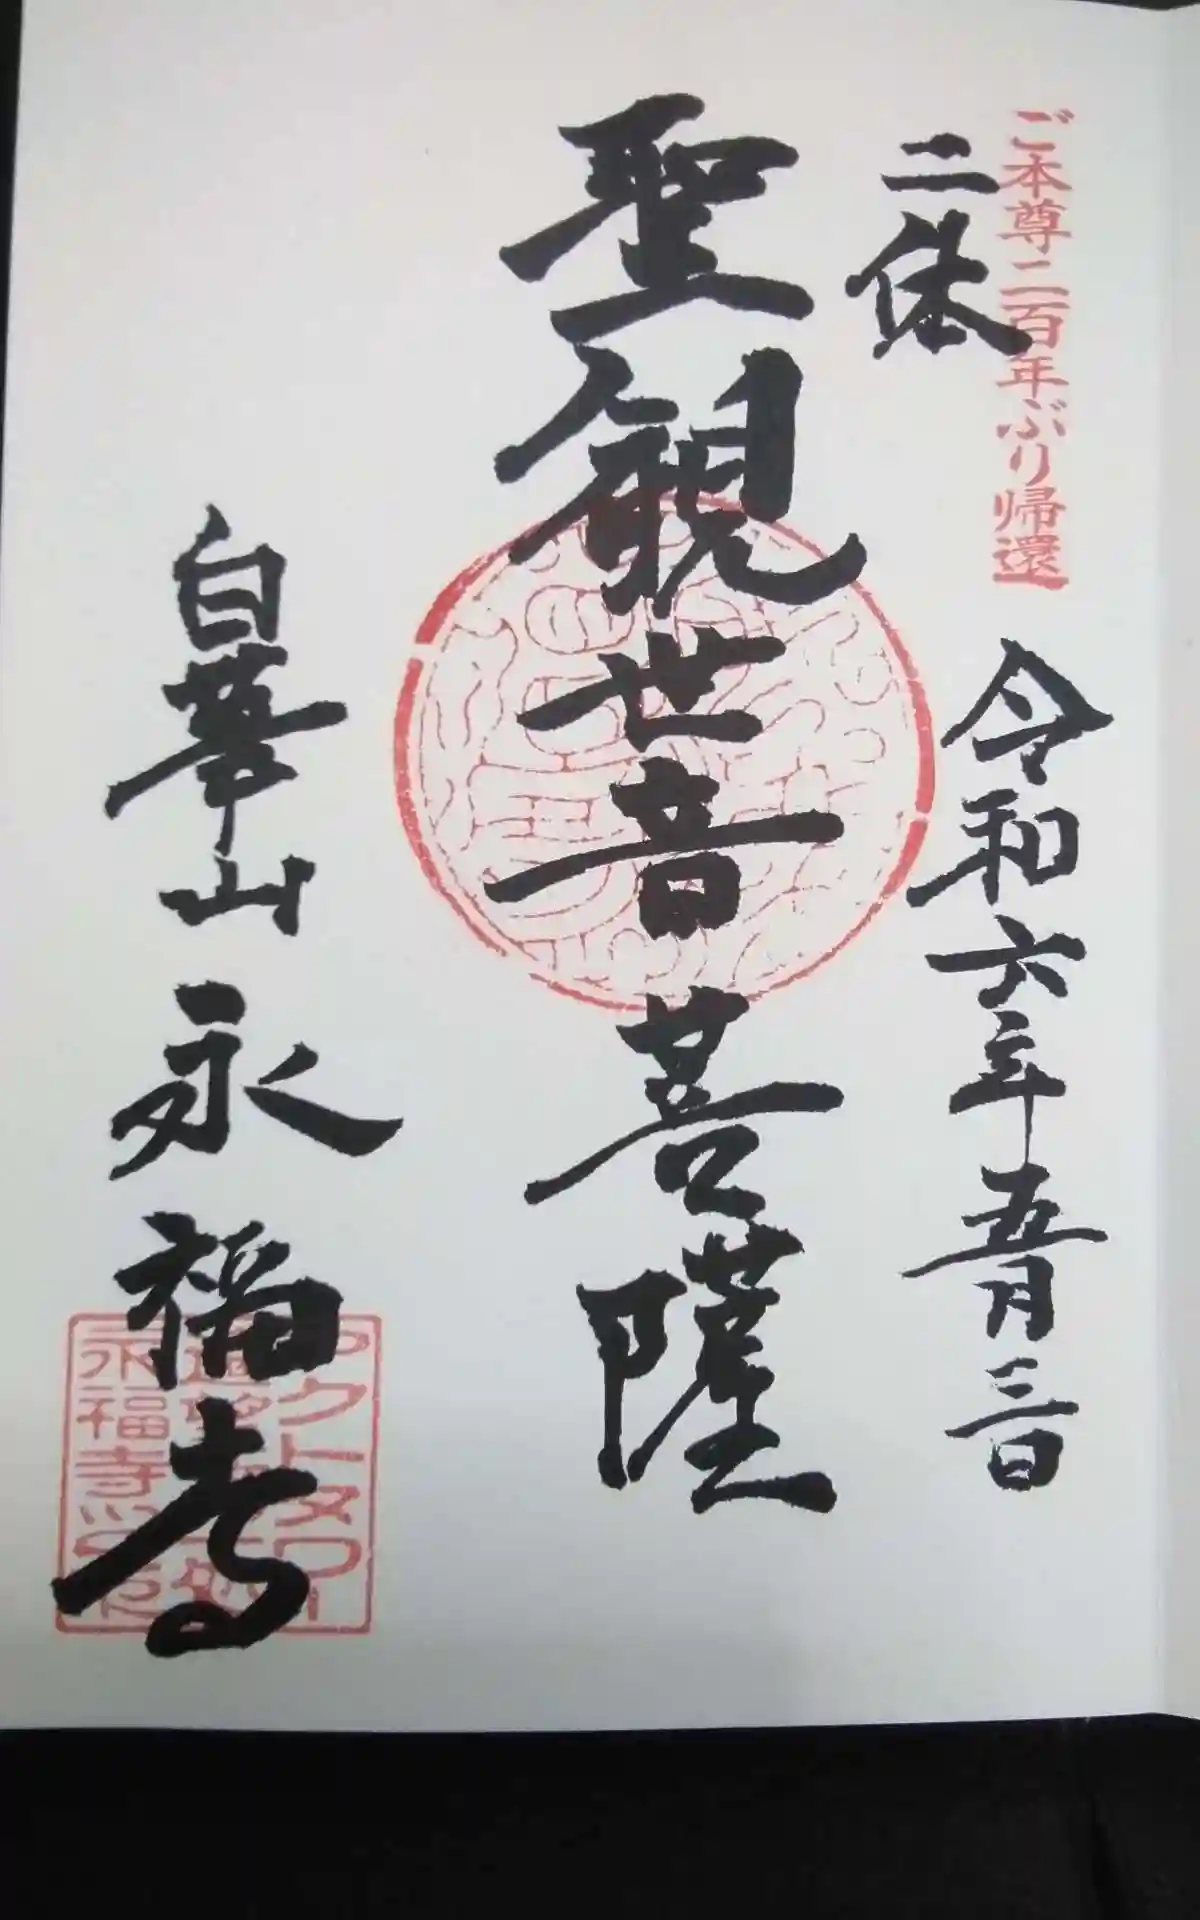 ご本尊二百年ぶり帰還
二体
令和六年五月三日
聖観世音菩薩
白華山
永福寺
永福寺